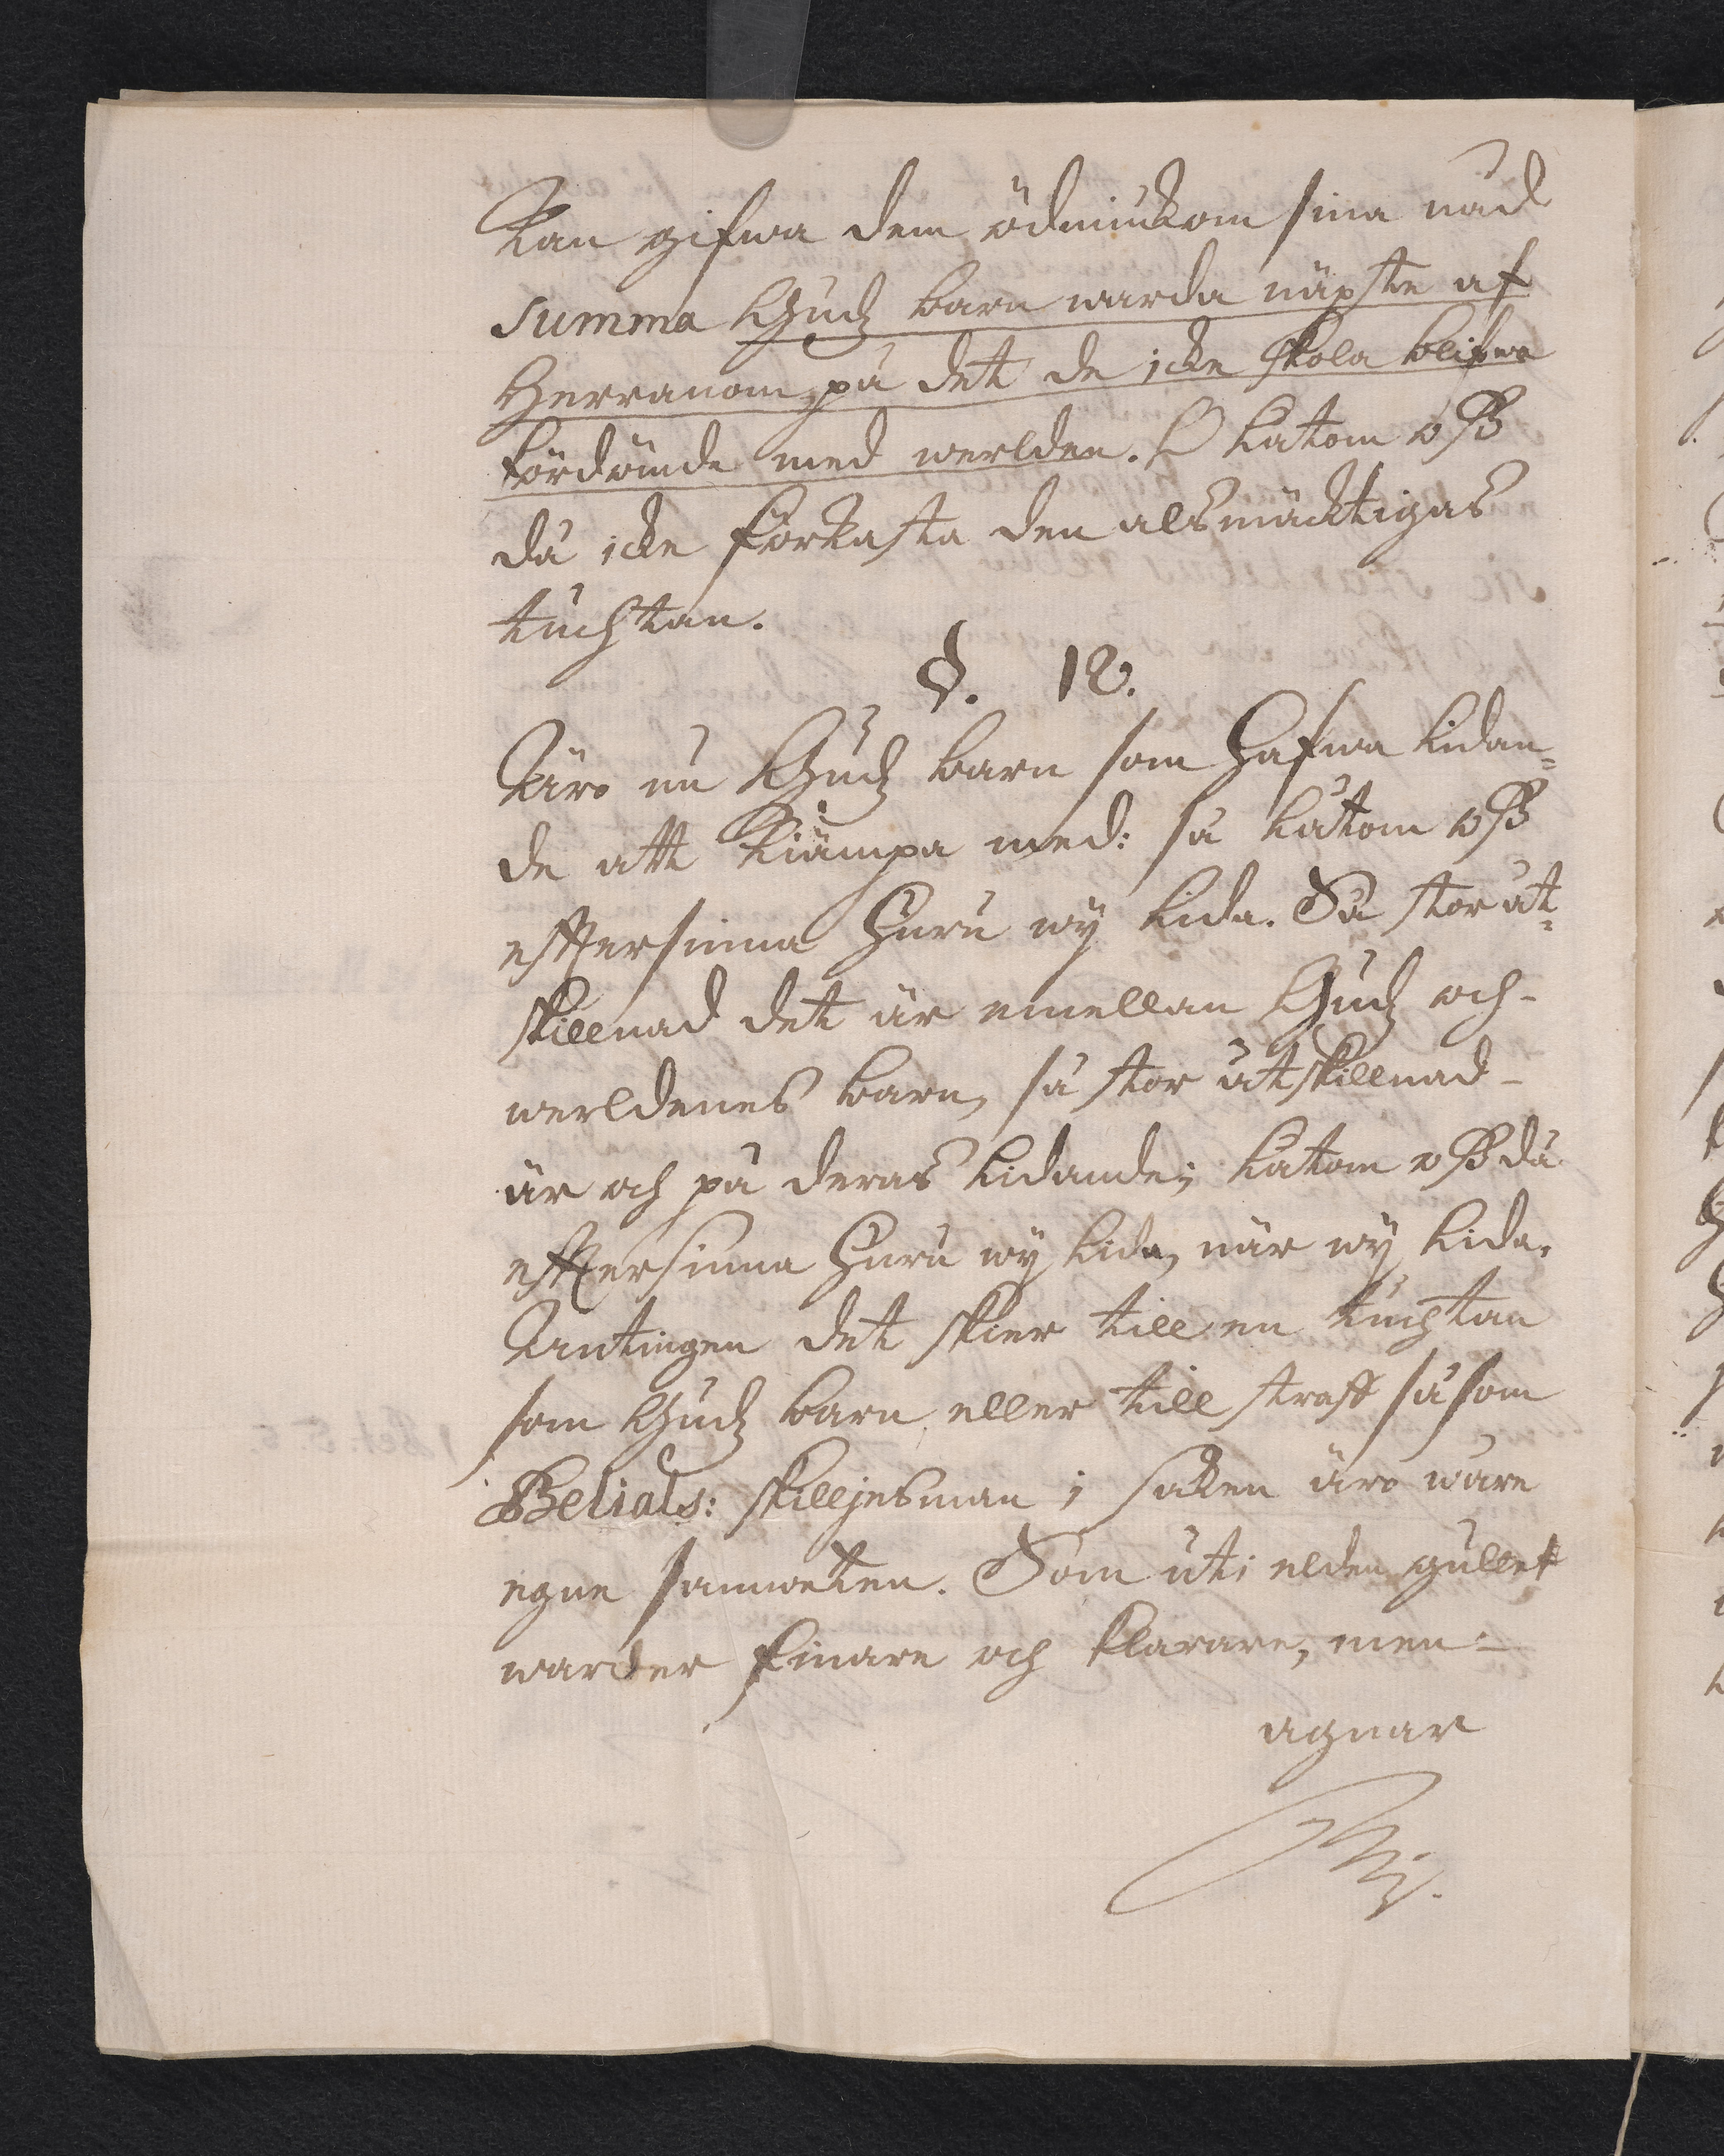 kan gifwa dem ödmiukom sina nåd
summa Gudz barn warda näpste af
Herranom, på det de icke skola blifwa
fördömde med werlden. O låtom oß
då icke förkasta den alsmächtigas
tuchtan.
§. 12.
Äro nu Gudz barn som hafwa lidan=
de att kiämpa med: så låtom oß
efftersinna huru wÿ lida. Så stor åt=
skillnad det är emellan Gudz och
werldenes barn, så stor åtskillnad
är och på deras lidande; låtom oß då
efftersinna huru wÿ lida, när wÿ lida.
Antingen det skier till en tuchtan
som Gudz barn, eller till straff såsom
Belials: skilljesman i saken äro wåre
egne samweten. Som uti elden gullet
warder finare och klarare, men
agnar